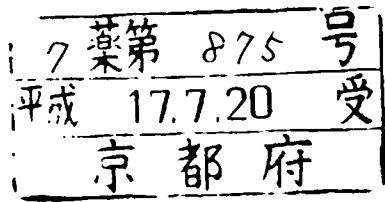 7薬第 875 号
平成 17.7.20 受
京都府